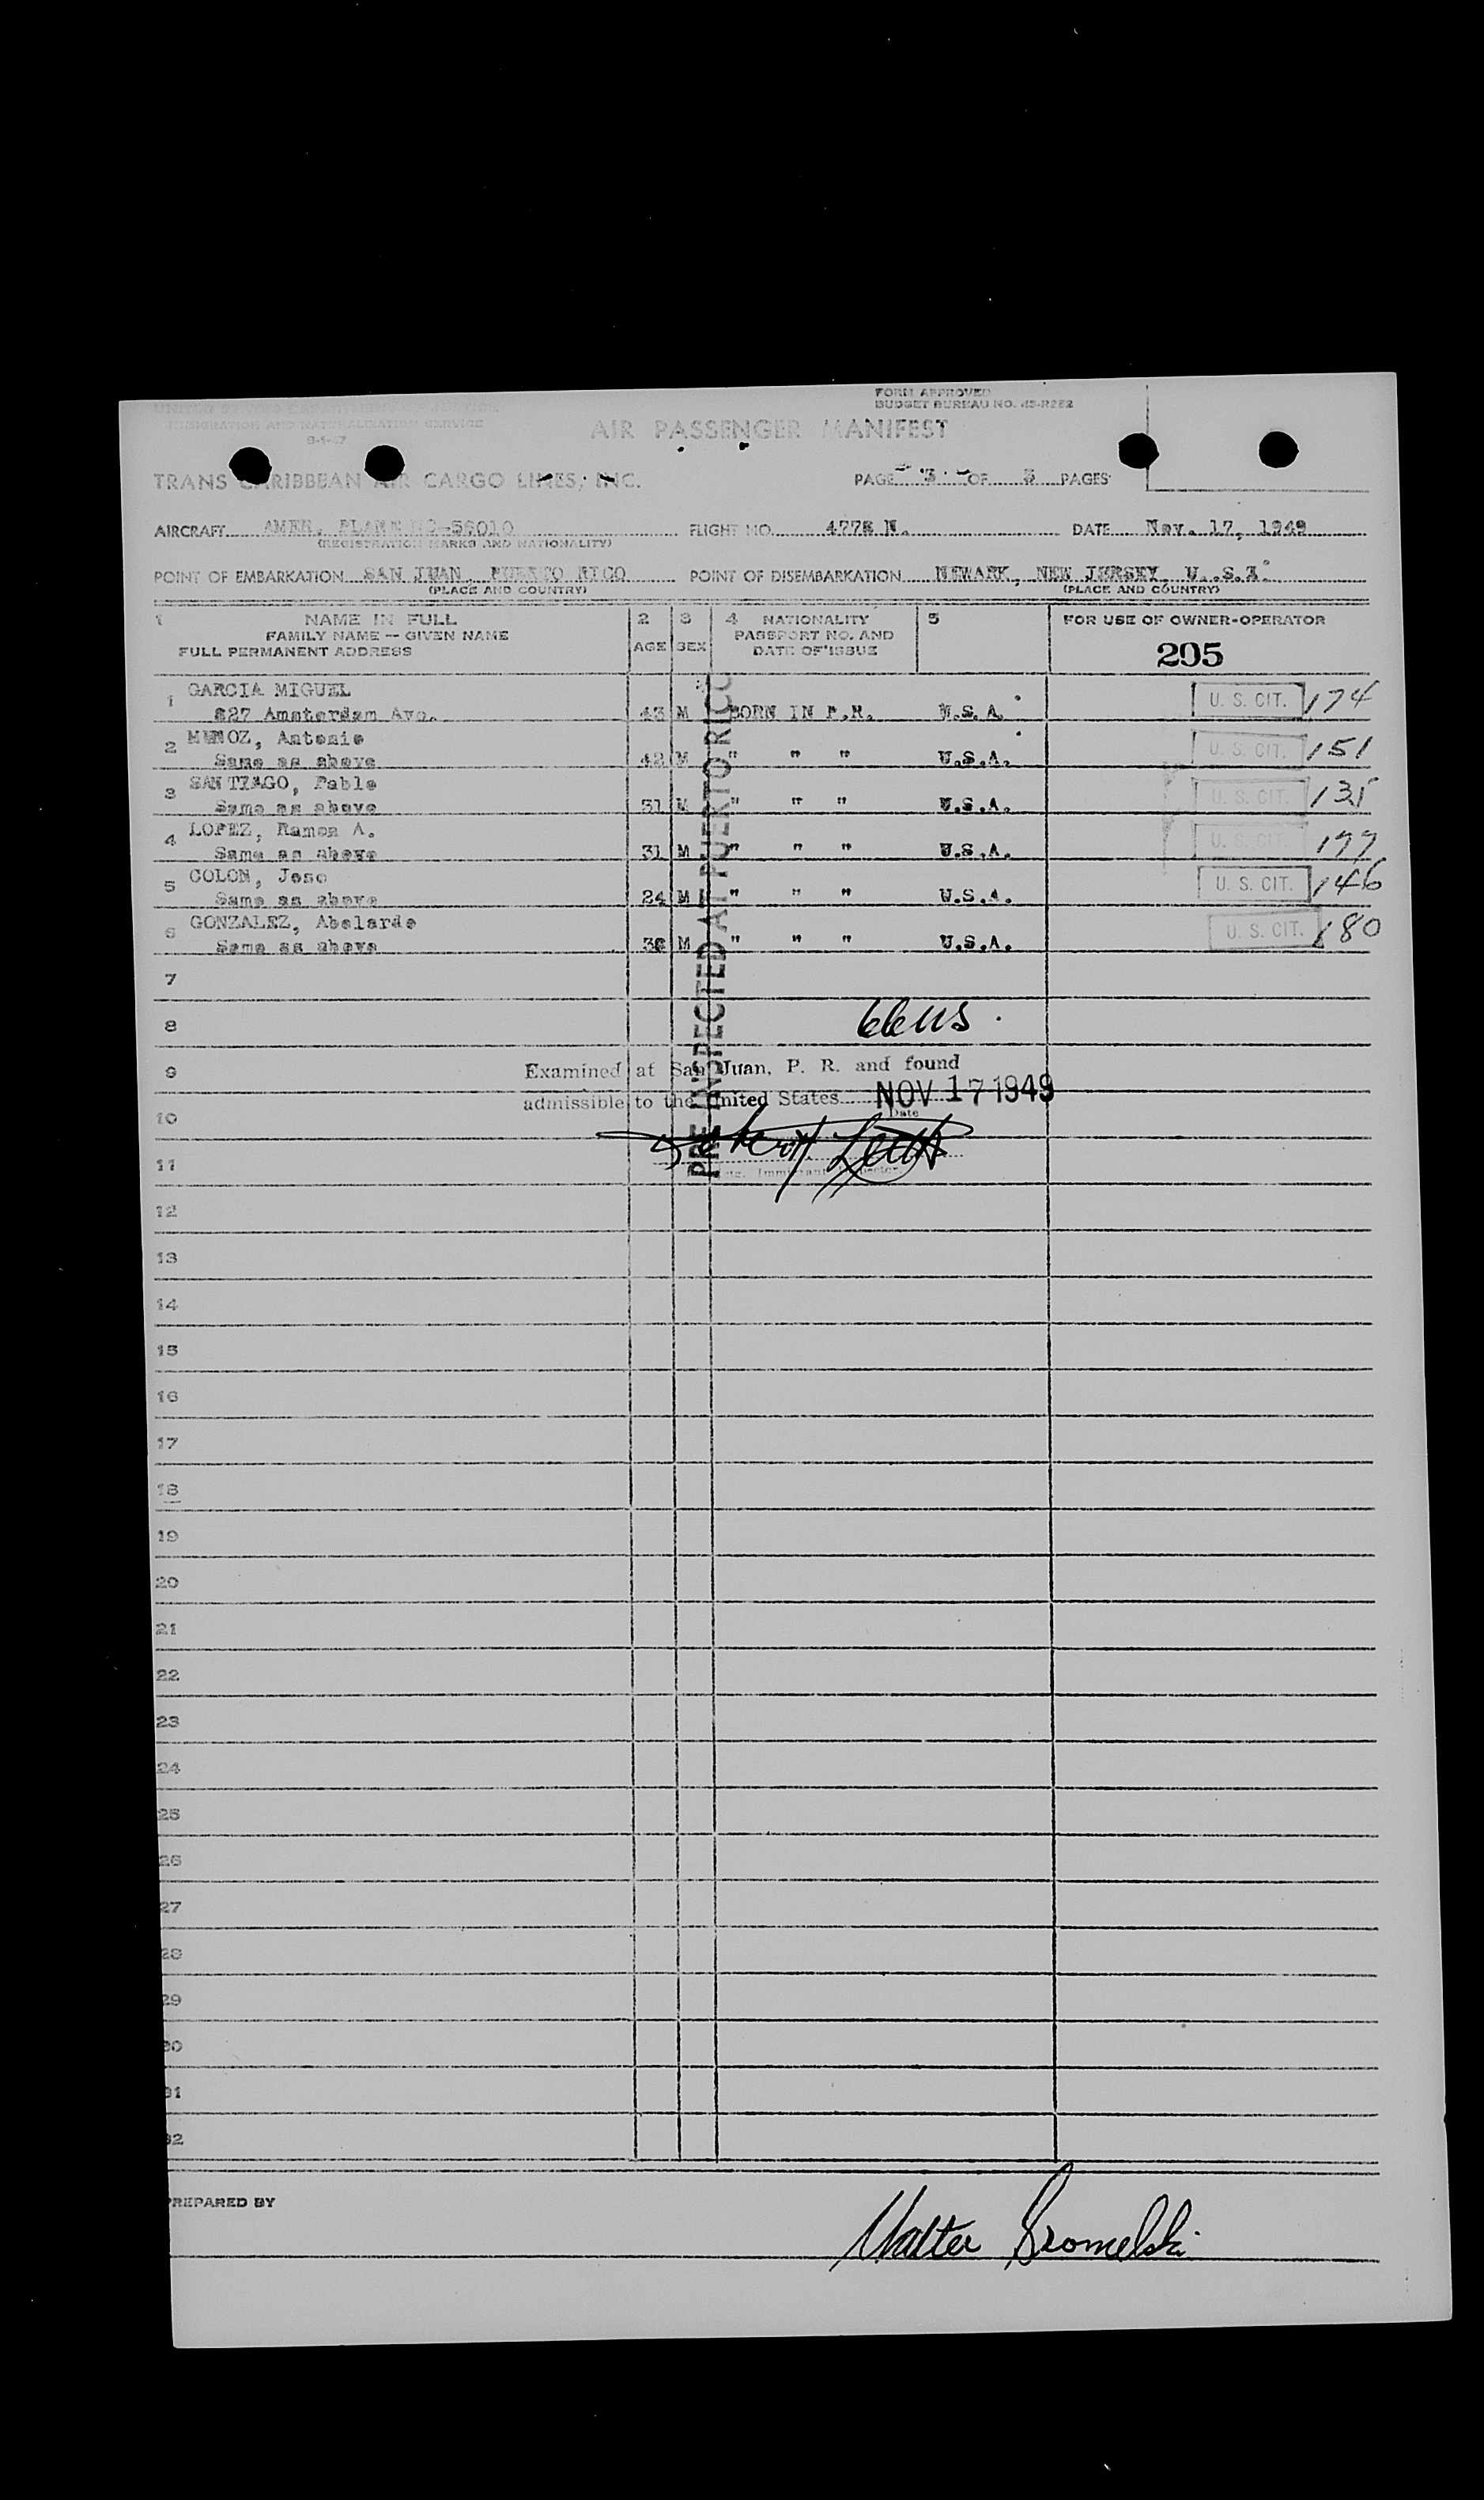 FORM APPROVED
BUDGET BUREAU NO. 43-R282
UNITED STATES DEPARTMENT OF JUSTICE
IMMIGRATION AND NATURALIZATION SERVICE
AIR PASSENGER MANIFEST
TRANS CARIBBEAN AIR CARGO LINES, INC. PAGE 3 OF 3 PAGES
AIRCRAFT AMER. PLANE NC-56010 FLIGHT NO. DATE Nov. 17, 1949
(REGISTRATION MARKS AND NATIONALITY)
POINT OF EMBARKATION SAN JUAN, PUERTO RICO POINT OF DISEMBARKATION NEWARK, NEW JERSEY, U.S.A.
(PLACE AND COUNTRY) (PLACE AND COUNTRY)
1 NAME IN FULL 2 3 4 NATIONALITY 5 FOR USE OF OWNER-OPERATOR
FAMILY NAME -- GIVEN NAME AGE SEX PASSPORT NO. AND
FULL PERMANENT ADDRESS DATE OF ISSUE 205
1 GARCIA MIGUEL U. S. CIT. 174
827 Amsterdam Ave. 43 M BORN IN P.R. U.S.A.
2 MUNOZ, Antonio U. S. CIT. 151
Same as above 42 M " " " U.S.A.
3 SANTIAGO, Pablo U. S. CIT. 135
Same as above 31 M " " " U.S.A.
4 LOPEZ, Ramon A. U. S. CIT. 177
Same as above 31 M " " " U.S.A.
5 COLON, Jose U. S. CIT. 146
Same as above 24 M " " " U.S.A.
6 GONZALEZ, Abelardo U. S. CIT. 180
Same as above M " " " U.S.A.
PRE-INSPECTED AT PUERTO RICO
7
8
9 Examined at San Juan, P. R. and found
admissible to the United States NOV 17 1949
10 Date
11
12
13
14
15
16
17
18
19
20
21
22
23
24
25
26
27
28
29
30
31
32
PREPARED BY
Walter